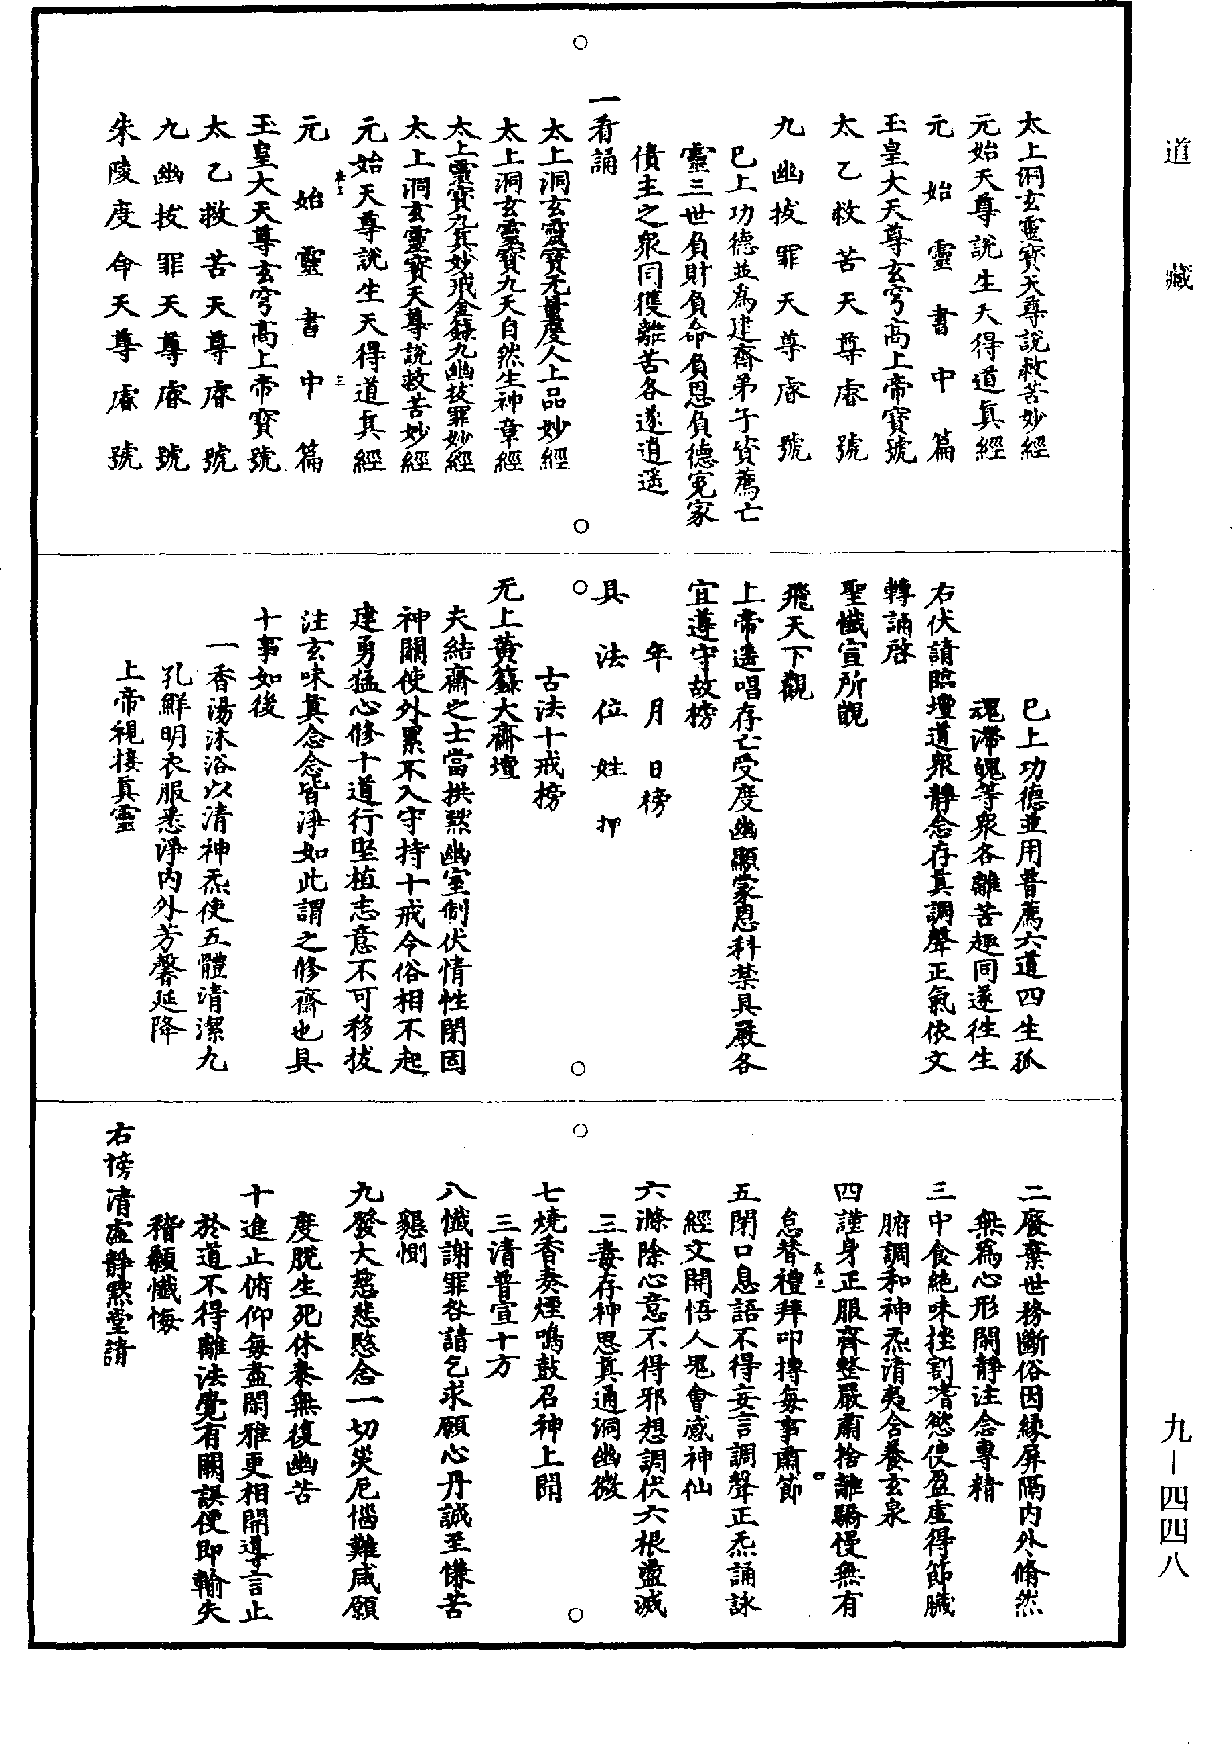 道藏
太上洞玄靈寶天尊說救苦妙經
元始天尊說生天得道真經
元始靈書中篇
玉皇大天尊玄穹高上帝寶號
太乙救苦天尊睿號
九幽拔罪天尊睿號
已上功德並為建齋弟子資薦亡
靈三世負財負命負恩負德冤家
債主之眾同獲離苦各遂逍遥
一看誦
太上洞玄靈寶无量度人上品妙經
太上洞玄靈寶九天自然生神章經
太上靈寶九真妙戒金籙九幽拔罪妙經
太上洞玄靈寶天尊說救苦妙經
元始天尊說生天得道真經
元始靈書中篇
玉皇大天尊玄穹高上帝寶號
太乙救苦天尊睿號
九幽拔罪天尊睿號
朱陵度命天尊睿號
已上功德並用普薦六道四生孤
魂滯魄等眾各離苦趣同遂往生
右伏請臨壇道眾靜念存真調聲正氣依文
轉誦啓
聖懺宣所覬
飛天下觀
上帝遥唱存亡受度幽顯蒙恩科禁具嚴各
宜遵守故榜
年月日榜
具法位姓押
古法十戒榜
无上黃籙大齋壇
夫結齋之士當拱默幽室制伏情性閉固
神關使外累不入守持十戒令俗相不起
建勇猛心修十道行堅植志意不可移拔
注玄味真念念皆淨如此謂之修齋也具
十事如後
一香湯沐浴以清神炁使五體清潔九
孔鮮明衣服悉淨內外芳馨延降
上帝親接真靈
二廢棄世務斷俗因緣屏隔內外翛然
無為心形閑靜注念專精
三中食絕味挫割嗜慾使盈虛得節臟
腑調和神炁清夷含養玄泉
四謹身正服齊整嚴肅捨離驕慢無有
怠替禮拜叩摶每事肅節
五閉口息語不得妄言調聲正炁誦詠
經文開悟人鬼會感神仙
六滌除心意不得邪想調伏六根盪滅
三毒存神思真通洞幽微
七燒香奏煙鳴鼓召神上聞
三清普宣十方
八懺謝罪咎請乞求願心丹誠至慊苦
懇惻
九發大慈悲愍念一切災厄惱難咸願
度脫生死休泰無復幽苦
十進止俯仰每盡閑雅更相開導言止
於道不得離法覺有闕誤便即輸失
稽顙懺悔
右榜清虛靜默堂請
九－四四八